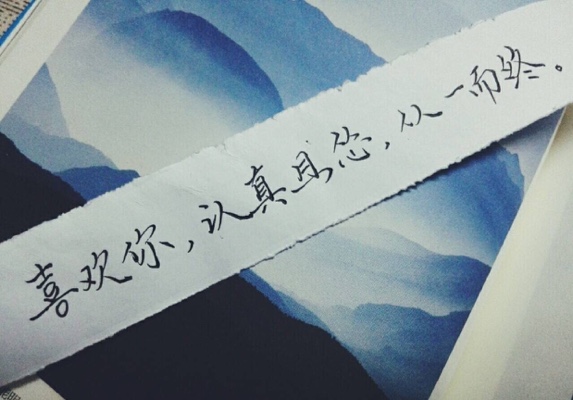 喜欢你,认真且怂,从一而终。